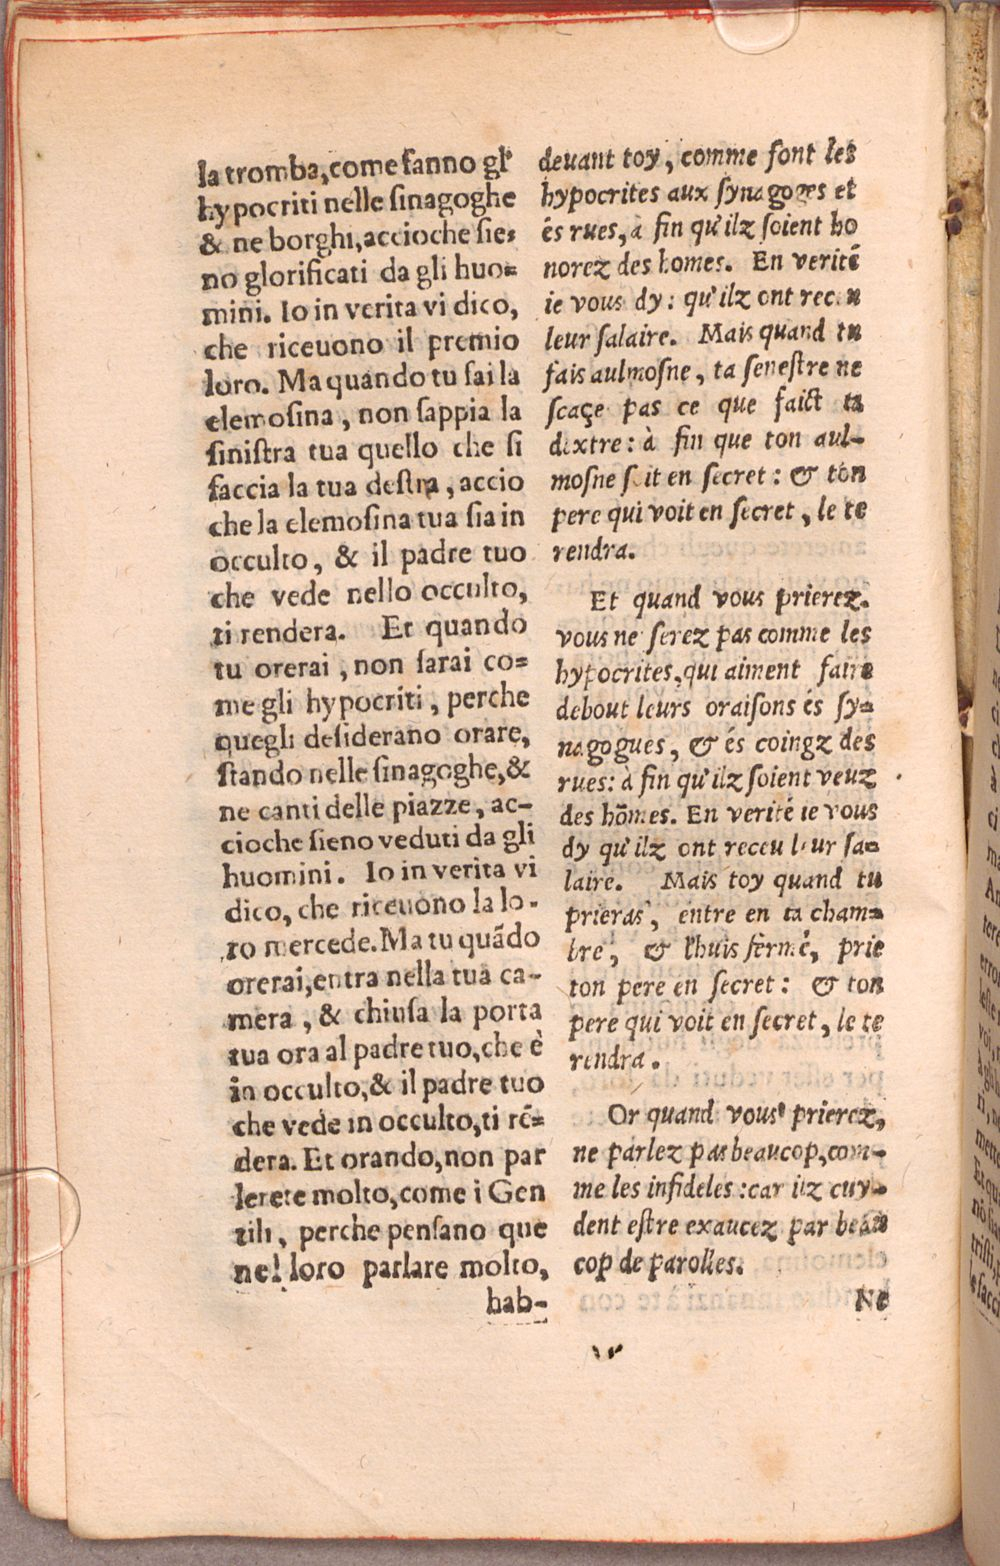 la tromba, come fanno gl'
hypocriti nelle ſinagoghe
& ne borghi, accioche ſie-
no glorificati da gli huo-
mini. Io in verita vi dico,
che riceuono il premio
loro. Ma quando tu fai la
elemoſina, non ſappia la
ſiniſtra tua quello che ſi
faccia la tua deſtra, accio
che la elemoſina tua ſia in
occulto, & il padre tuo
che vede nello occulto,
ti rendera. Et quando
tu orerai, non ſarai co-
me gli hypocriti, perche
quegli deſiderano orare,
ſtando nelle ſinagoghe, &
ne canti delle piazze, ac-
cioche ſieno veduti da gli
huomini. Io in verita vi
dico, che riceuono la lo-
ro mercede. Ma tu quãdo
orerai, entra nella tua ca-
mera, & chiuſa la porta
tua ora al padre tuo, che è
in occulto, & il padre tuo
che vede in occulto, ti rẽ-
dera. Et orando, non par
lerete molto, come i Gen
tili, perche penſano que
nel loro parlare molto,
hab-

deuant toy, comme font les
hypocrites aux ſynagoges et
és rues, à fin qu'ilz ſoient ho
norez des homes. En verité
ie vous dy: qu'ilz ont receu
leur ſalaire. Mais quand tu
fais aulmoſne, ta ſeneſtre ne
ſcaçe pas ce que faict ta
dextre: à fin que ton aul-
moſne ſoit en ſecret: & ton
pere qui voit en ſecret, le te
rendra.
Et quand vous prierez.
vous ne ſerez pas comme les
hypocrites, qui aiment faire
debout leurs oraiſons és ſy-
nagogues, & és coingz des
rues: à fin qu'ilz ſoient veuz
des hõmes. En verité ie vous
dy qu'ilz ont receu leur ſa-
laire. Mais toy quand tu
prieras, entre en ta cham-
bre, & l'huis fermé, prie
ton pere en ſecret: & ton
pere qui voit en ſecret, le te
rendra.
Or quand vous prierez,
ne parlez pas beaucop, com-
me les infideles: car ilz cuy-
dent eſtre exaucez par beau
cop de parolles.
Ne